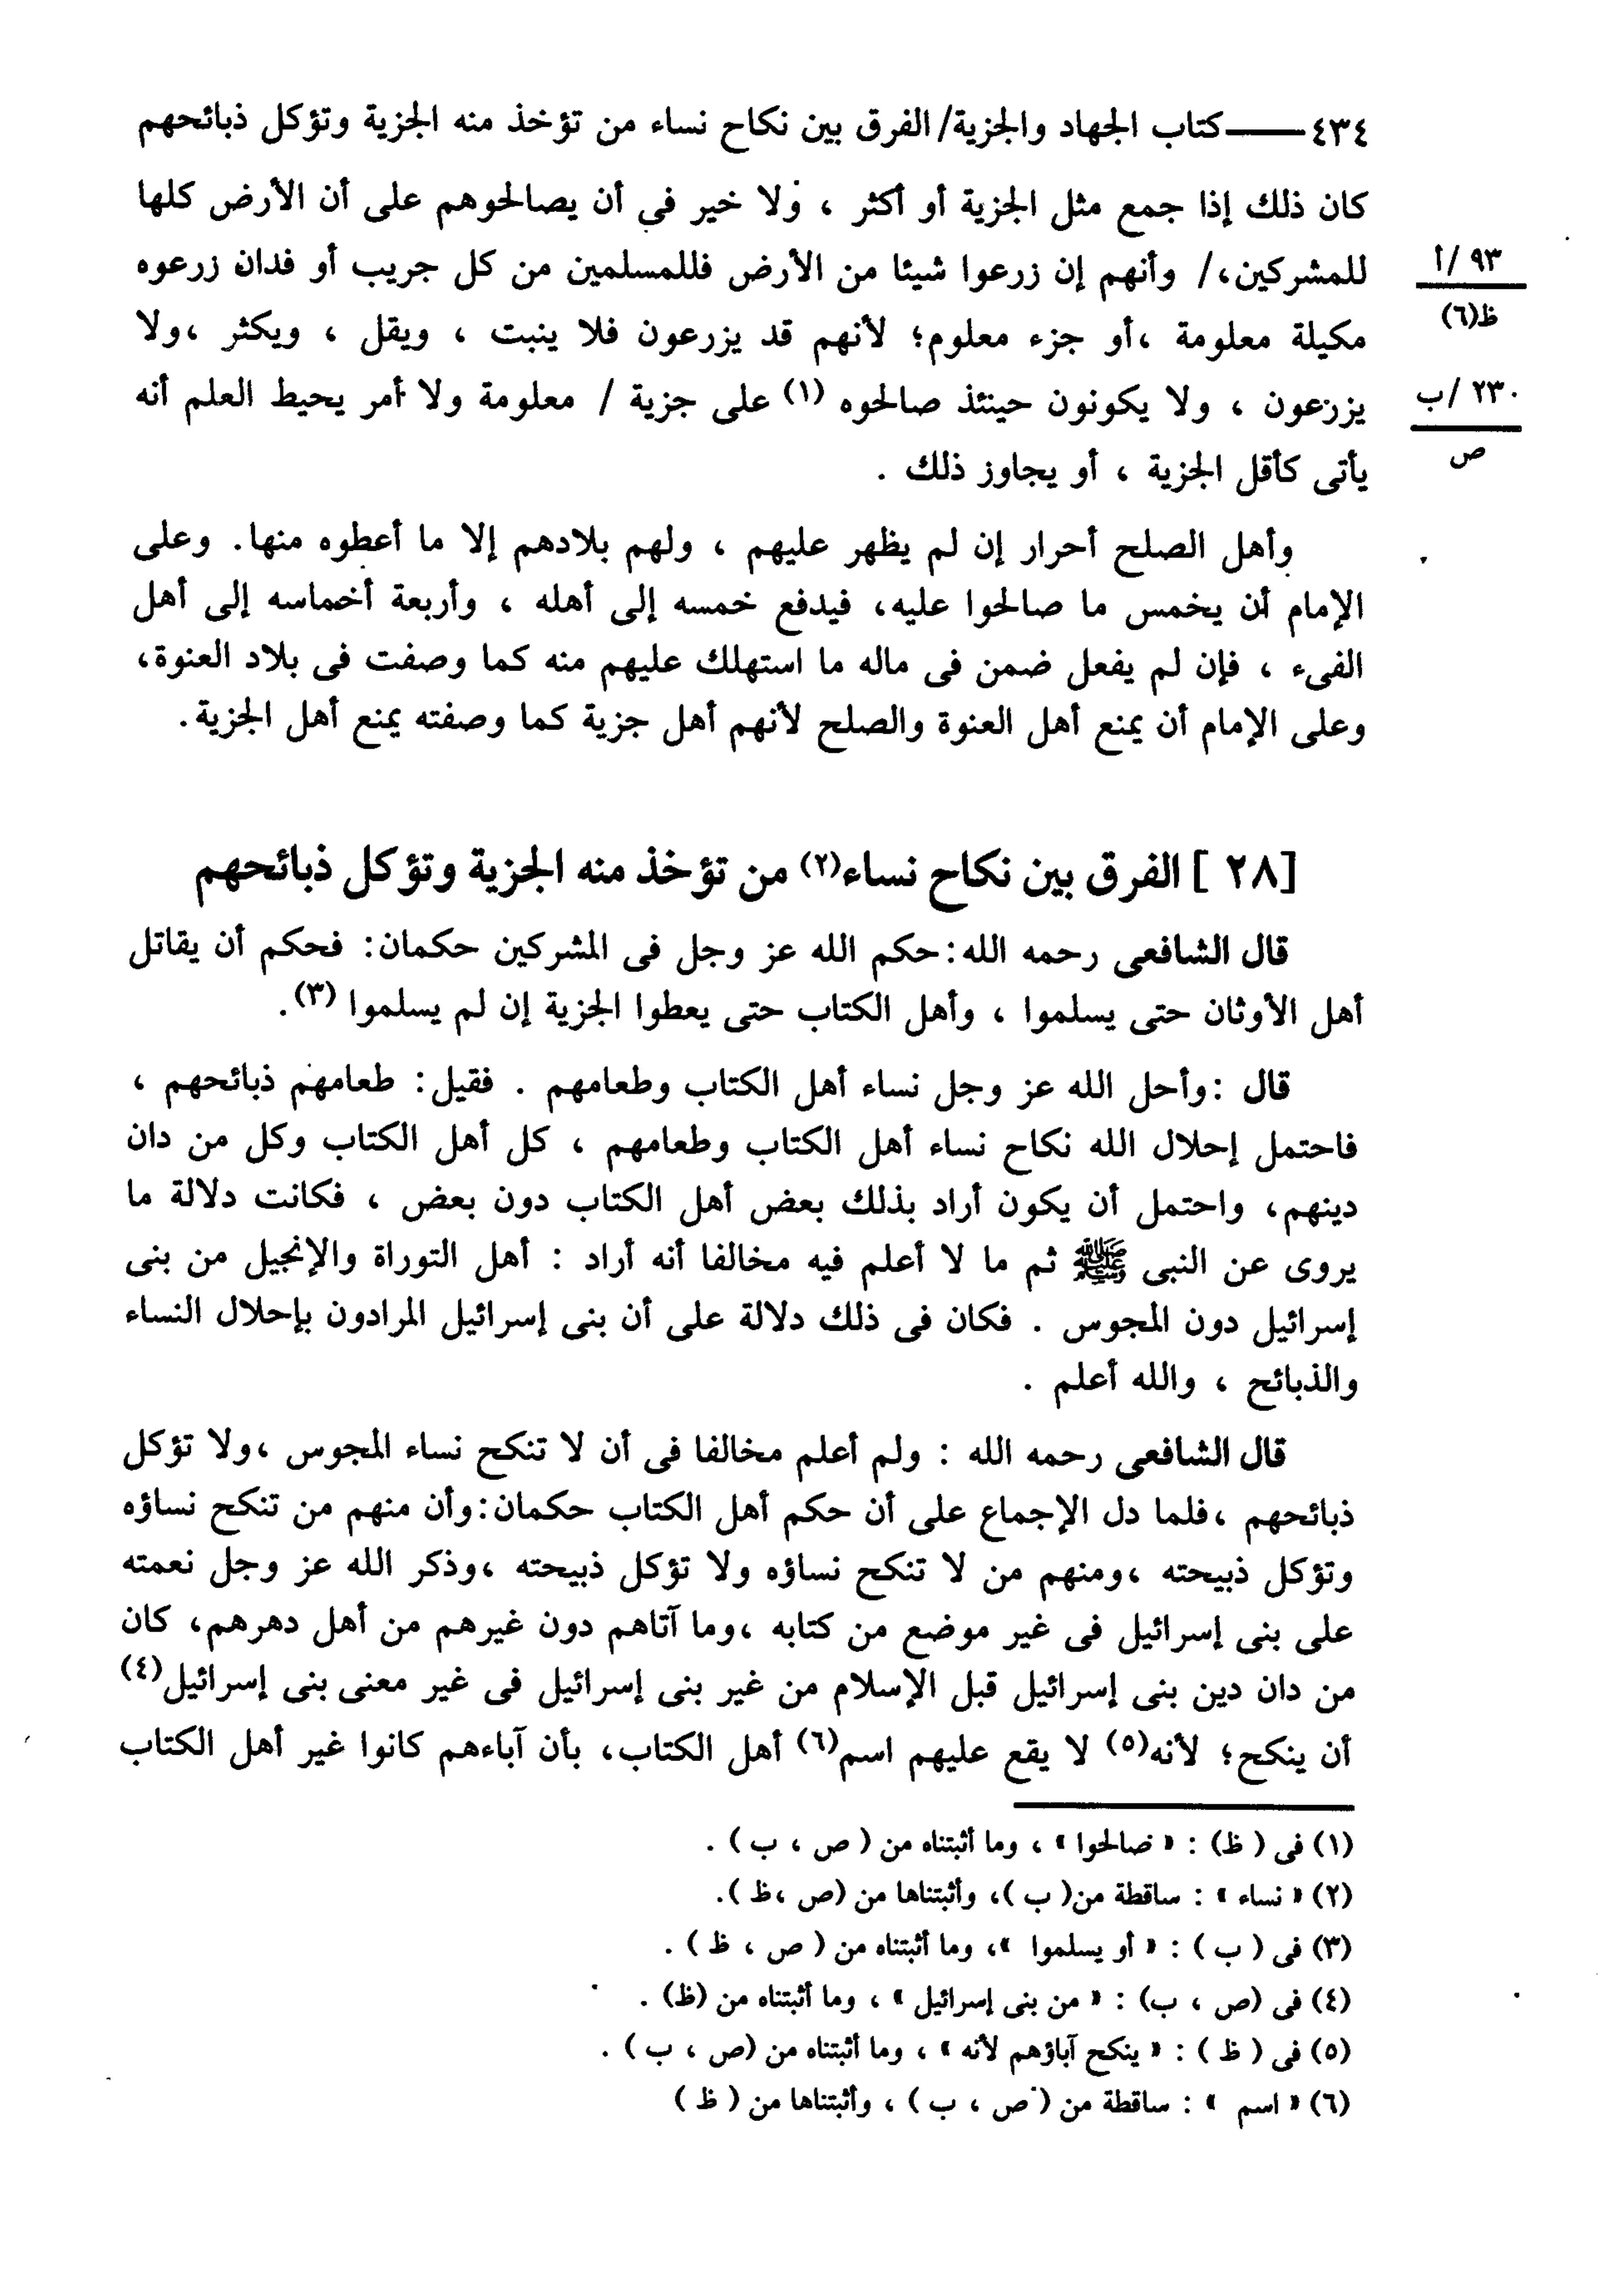 ٤٣٤ ــــــ كتاب الجهاد والجزية/ الفرق بين نكاح نساء من تؤخذ منه الجزية وتؤكل ذبائحهم
كان ذلك إذا جمع مثل الجزية أو أكثر ، ولا خير فى أن يصالحوهم على أن الأرض كلها
للمشركين،/ وأنهم إن زرعوا شيئا من الأرض فللمسلمين من كل جريب أو فدان زرعوه
٩٣ /أ
ظ(٦)
مكيلة معلومة ،أو جزء معلوم؛ لأنهم قد يزرعون فلا ينبت ، ويقل ، ويكثر ،ولا
يزرعون ، ولا يكونون حينئذ صالحوه (١) على جزية / معلومة ولا أمر يحيط العلم أنه
٢٣٠ /ب
ص
يأتى كأقل الجزية ، أو يجاوز ذلك .
وأهل الصلح أحرار إن لم يظهر عليهم ، ولهم بلادهم إلا ما أعطوه منها. وعلى
الإمام أن يخمس ما صالحوا عليه، فيدفع خمسه إلى أهله ، وأربعة أخماسه إلى أهل
الفىء ، فإن لم يفعل ضمن فى ماله ما استهلك عليهم منه كما وصفت فى بلاد العنوة،
وعلى الإمام أن يمنع أهل العنوة والصلح لأنهم أهل جزية كما وصفته يمنع أهل الجزية.
[٢٨ ] الفرق بين نكاح نساء(٢) من تؤخذ منه الجزية وتؤكل ذبائحهم
قال الشافعى رحمه الله: حكم الله عز وجل فى المشركين حكمان: فحكم أن يقاتل
أهل الأوثان حتى يسلموا ، وأهل الكتاب حتى يعطوا الجزية إن لم يسلموا (٣).
قال :وأحل الله عز وجل نساء أهل الكتاب وطعامهم . فقيل: طعامهم ذبائحهم ،
فاحتمل إحلال الله نكاح نساء أهل الكتاب وطعامهم ، كل أهل الكتاب وكل من دان
دينهم، واحتمل أن يكون أراد بذلك بعض أهل الكتاب دون بعض ، فكانت دلالة ما
يروى عن النبى ﷺ ثم ما لا أعلم فيه مخالفا أنه أراد : أهل التوراة والإنجيل من بنى
إسرائيل دون المجوس . فكان فى ذلك دلالة على أن بنى إسرائيل المرادون بإحلال النساء
والذبائح ، والله أعلم .
قال الشافعى رحمه الله : ولم أعلم مخالفا فى أن لا تنكح نساء المجوس ،ولا تؤكل
ذبائحهم ،فلما دل الإجماع على أن حكم أهل الكتاب حكمان:وأن منهم من تنكح نساؤه
وتؤكل ذبيحته ،ومنهم من لا تنكح نساؤه ولا تؤكل ذبيحته ،وذكر الله عز وجل نعمته
على بنى إسرائيل فى غير موضع من كتابه ،وما آتاهم دون غيرهم من أهل دهرهم، كان
من دان دين بنى إسرائيل قبل الإسلام من غير بنى إسرائيل فى غير معنى بنى إسرائيل(٤)
أن ينكح؛ لأنه(٥) لا يقع عليهم اسم(٦) أهل الكتاب، بأن آباءهم كانوا غير أهل الكتاب
(١) فى ( ظ) : « صالحوا » ، وما أثبتناه من ( ص ، ب ) .
(٢) « نساء » : ساقطة من( ب )، وأثبتناها من (ص ،ظ ).
(٣) فى ( ب ) : « أو يسلموا »، وما أثبتناه من ( ص ، ظ ) .
(٤) فى (ص ، ب) : « من بنى إسرائيل » ، وما أثبتناه من (ظ) .
(٥) فى ( ظ ) : « ينكح آباؤهم لأنه » ، وما أثبتناه من (ص ، ب ) .
(٦) « اسم » : ساقطة من ( ص ، ب ) ، وأثبتناها من ( ظ )